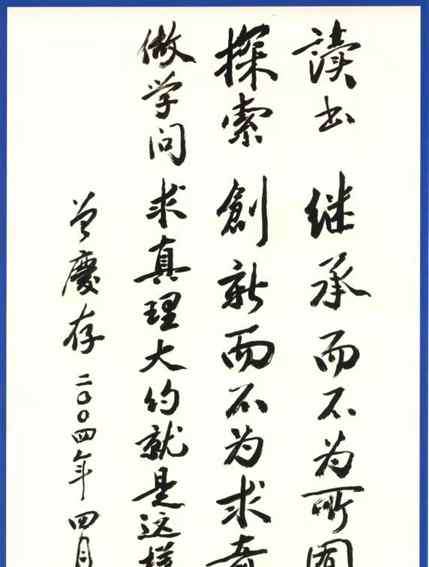 读书 继承而不为所囿
探索 創新而不为求奇
做学问 求真理大约就是这樣
曾慶存 二〇〇四年四月